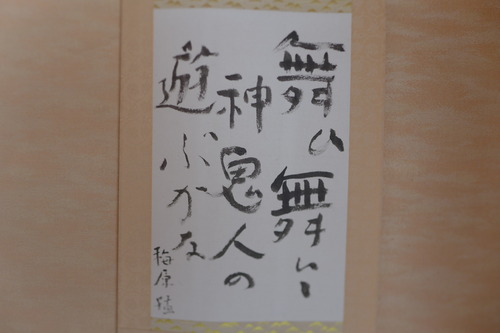 舞ひ舞ひ
神鬼人の
遊ぶかな
梅原猛